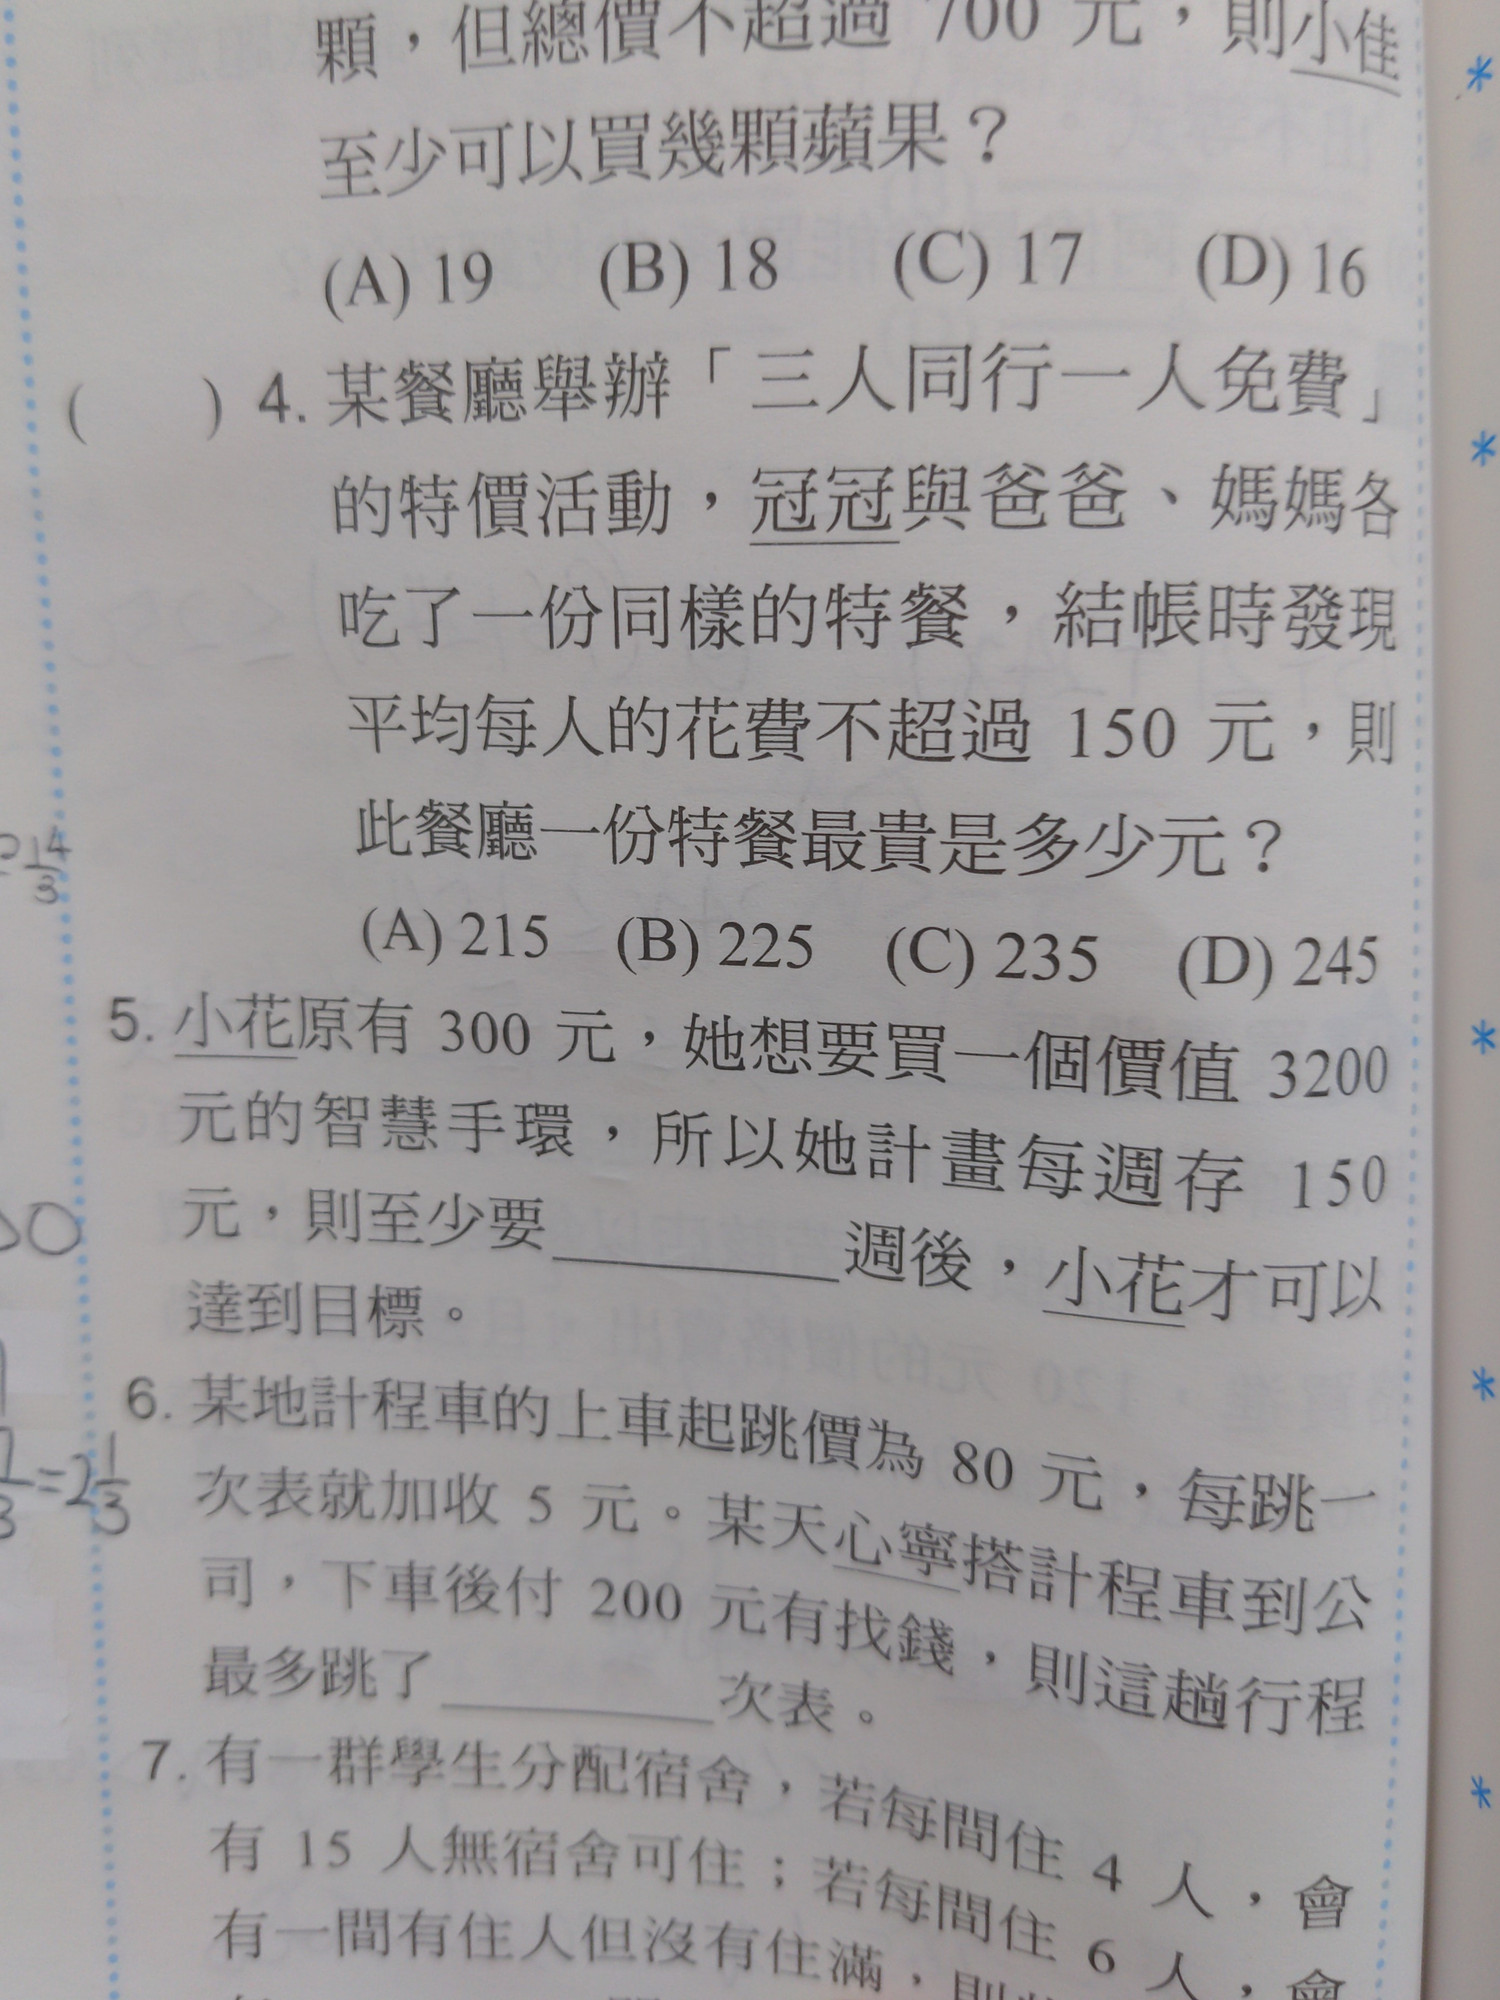 顆，但總價不超過 700 元，則小佳
至少可以買幾顆蘋果？
(A) 19 (B) 18 (C) 17 (D) 16
( ) 4. 某餐廳舉辦「三人同行一人免費」
的特價活動，冠冠與爸爸、媽媽各
吃了一份同樣的特餐，結帳時發現
平均每人的花費不超過 150 元，則
此餐廳一份特餐最貴是多少元？
(A) 215 (B) 225 (C) 235 (D) 245
5. 小花原有 300 元，她想要買一個價值 3200
元的智慧手環，所以她計畫每週存 150
元，則至少要 週後，小花才可以
達到目標。
6. 某地計程車的上車起跳價為 80 元，每跳一
次表就加收 5 元。某天心寧搭計程車到公
司，下車後付 200 元有找錢，則這趟行程
最多跳了 次表。
=2 1/3
7. 有一群學生分配宿舍，若每間住 4 人，會
有 15 人無宿舍可住；若每間住 6 人，會
有一間有住人但沒有住滿，則